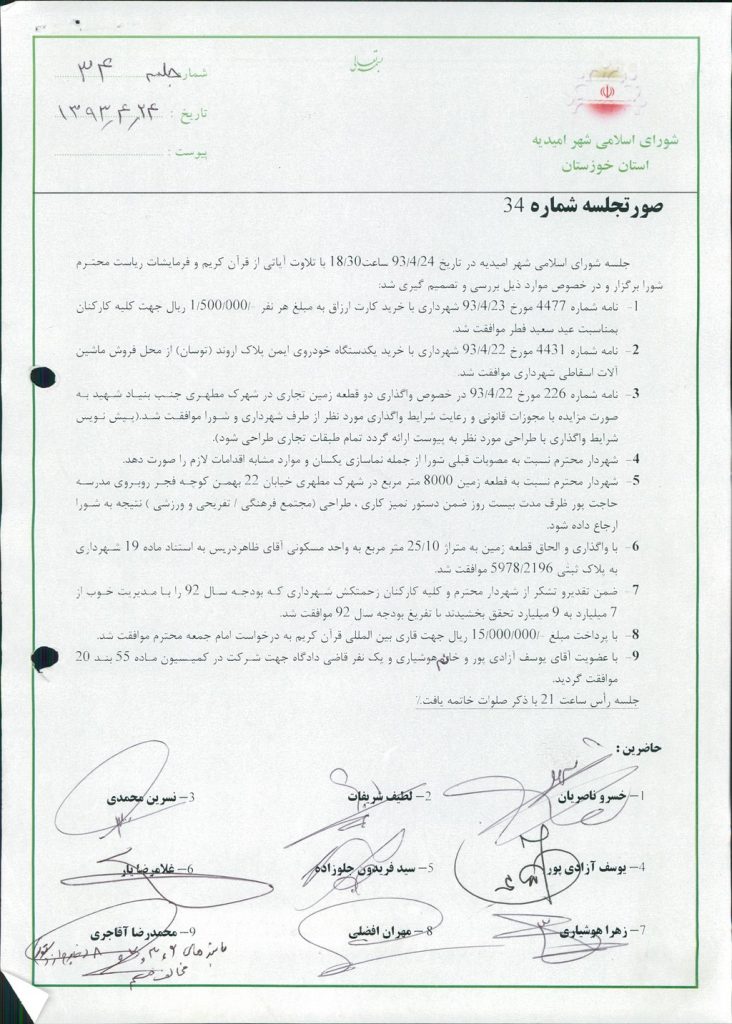 بسمه تعالی
شماره جلسه ۳۴
تاریخ : ۱۳۹۳/۴/۲۴
پیوست :
شورای اسلامی شهر امیدیه
استان خوزستان
صورتجلسه شماره 34
جلسه شورای اسلامی شهر امیدیه در تاریخ 93/4/24 ساعت18/30 با تلاوت آیاتی از قرآن کریم و فرمایشات ریاست محترم
شورا برگزار و در خصوص موارد ذیل بررسی و تصمیم گیری شد:
1- نامه شماره 4477 مورخ 93/4/23 شهرداری با خرید کارت ارزاق به مبلغ هر نفر -/1/500/000 ریال جهت کلیه کارکنان
بمناسبت عید سعید فطر موافقت شد.
2- نامه شماره 4431 مورخ 93/4/22 شهرداری با خرید یکدستگاه خودروی ایمن پلاک اروند (توسان) از محل فروش ماشین
آلات اسقاطی شهرداری موافقت شد.
3- نامه شماره 226 مورخ 93/4/22 در خصوص واگذاری دو قطعه زمین تجاری در شهرک مطهری جنب بنیاد شهید به
صورت مزایده با مجوزات قانونی و رعایت شرایط واگذاری مورد نظر از طرف شهرداری و شورا موافقت شد.(پیش نویس
شرایط واگذاری با طراحی مورد نظر به پیوست ارائه گردد تمام طبقات تجاری طراحی شود).
4- شهردار محترم نسبت به مصوبات قبلی شورا از جمله نماسازی یکسان و موارد مشابه اقدامات لازم را صورت دهد.
5- شهردار محترم نسبت به قطعه زمین 8000 متر مربع در شهرک مطهری خیابان 22 بهمن کوچه فجر روبروی مدرسه
حاجت پور ظرف مدت بیست روز ضمن دستور تمیز کاری ، طراحی (مجتمع فرهنگی / تفریحی و ورزشی ) نتیجه به شورا
ارجاع داده شود.
6- با واگذاری و الحاق قطعه زمین به متراژ 25/10 متر مربع به واحد مسکونی آقای ظاهردریس به استناد ماده 19 شهرداری
به پلاک ثبتی 5978/2196 موافقت شد.
7- ضمن تقدیرو تشکر از شهردار محترم و کلیه کارکنان زحمتکش شهرداری که بودجه سال 92 را با مدیریت خوب از
7 میلیارد به 9 میلیارد تحقق بخشیدند با تفریغ بودجه سال 92 موافقت شد.
8- با پرداخت مبلغ -/15/000/000 ریال جهت قاری بین المللی قرآن کریم به درخواست امام جمعه محترم موافقت شد.
9- با عضویت آقای یوسف آزادی پور و خانم هوشیاری و یک نفر قاضی دادگاه جهت شرکت در کمیسیون ماده 55 بند 20
موافقت گردید.
جلسه رأس ساعت 21 با ذکر صلوات خاتمه یافت٪
حاضرین :
1- خسرو ناصریان 2- لطیف شریفات 3- نسرین محمدی
4- یوسف آزادی پور 5- سید فریدون جلوزاده 6- غلامرضا یار
7- زهرا هوشیاری 8- مهران افضلی 9- محمدرضا آقاجری
مخالف هستم